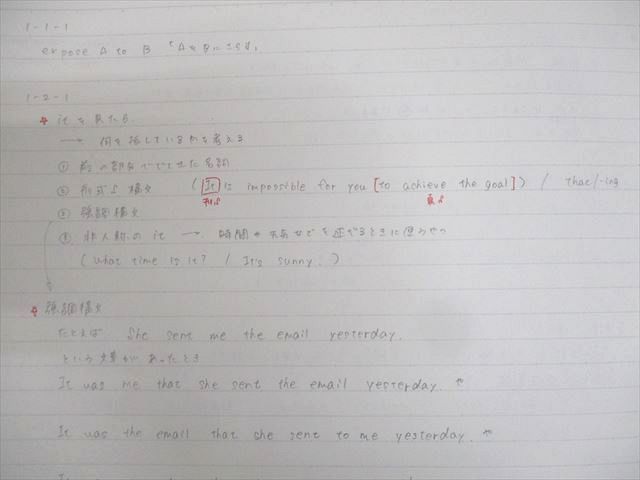 1-1-1
expose A to B 「AをBにさらす」
1-2-1
☆ itを見たら
→ 何を指しているかを考える
① 前の部分ででてきた名詞
② 形式S 構文 (It is impossible for you [to achieve the goal]) / that/-ing
形S 真S
③ 強調構文
④ 非人称の it → 時間や天気などを述べるときに使うやつ
(What time is it? / It's sunny.)
☆ 強調構文
たとえば She sent me the email yesterday.
という文章があったとき
It was me that she sent the email yesterday. や
It was the email that she sent to me yesterday. や